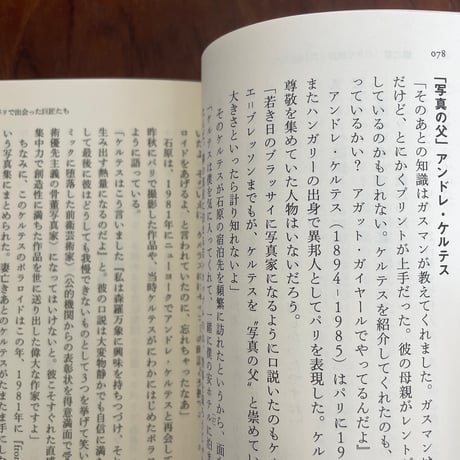 078
「写真の父」アンドレ・ケルテス
「そのあとの知識はガスマンが教えてくれました。ガスマン
だけど、とにかくプリントが上手だった。彼の母親がレントゲ
しているのかもしれない。ケルテスを紹介してくれたのも、
っているかい？　アガット・ガイヤールでやってるんだよ」
アンドレ・ケルテス（1894-1985）はパリに19
またハンガリーの出身で異邦人としてパリを表現した。ケル
尊敬を集めていた人物はいないだろう。
「若き日のブラッサイに写真家になるように口説いたのもケ
エ=ブレッソンまでもが、ケルテスを〝写真の父〟と崇めてい
大きさといったら計り知れないよ」
そのケルテスが石原の宿泊先を頻繁に訪れたというから、面
「ケルテスは僕を気に入って、一緒に僕の安ホテルに泊ま
ドで出会った巨匠たち
ロイドをあげるよ、と言われていたのに、忘れちゃったなあ」
石原は、1981年にニューヨークでアンドレ・ケルテスと再会して
昨秋にパリで撮影した作品や、当時ケルテスがにわかにはじめたポラ
ように語っている。
「ケルテスはこう言いました『私は森羅万象に興味を持ちつづけ、そ
生み出す熱量になるのだよ』と。彼の口説は大変物静かでも自信に満
して最後に彼はどうしても我慢できないものとして3つを挙げて笑い
ミックに堕落した前衛芸術家）（公的機関からの表彰状を得意満面で受
術優先主義の骨董写真家）になってはいけないと。彼こそすぐれた直
集中力で創造性に満ちた作品を世に送り出した偉大な作家ですよ」
ちなみに、このケルテスのポラロイドはこの年、1981年に『from
いう写真集にまとめられた。妻亡きあとのケルテスがたまたま手にし